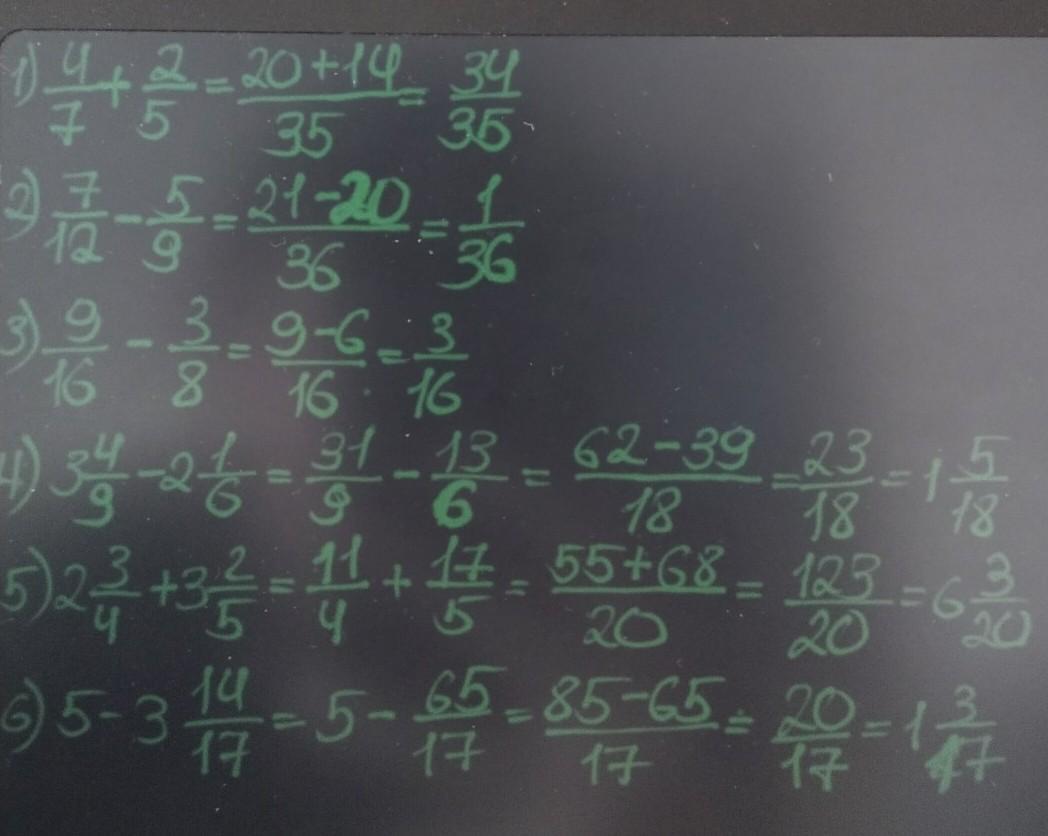 1) 4/7 + 2/5 = (20+14)/35 = 34/35
2) 7/12 - 5/9 = (21-20)/36 = 1/36
3) 9/16 - 3/8 = (9-6)/16 = 3/16
4) 3 4/9 - 2 1/6 = 31/9 - 13/6 = (62-39)/18 = 23/18 = 1 5/18
5) 2 3/4 + 3 2/5 = 11/4 + 17/5 = (55+68)/20 = 123/20 = 6 3/20
6) 5 - 3 14/17 = 5 - 65/17 = (85-65)/17 = 20/17 = 1 3/17